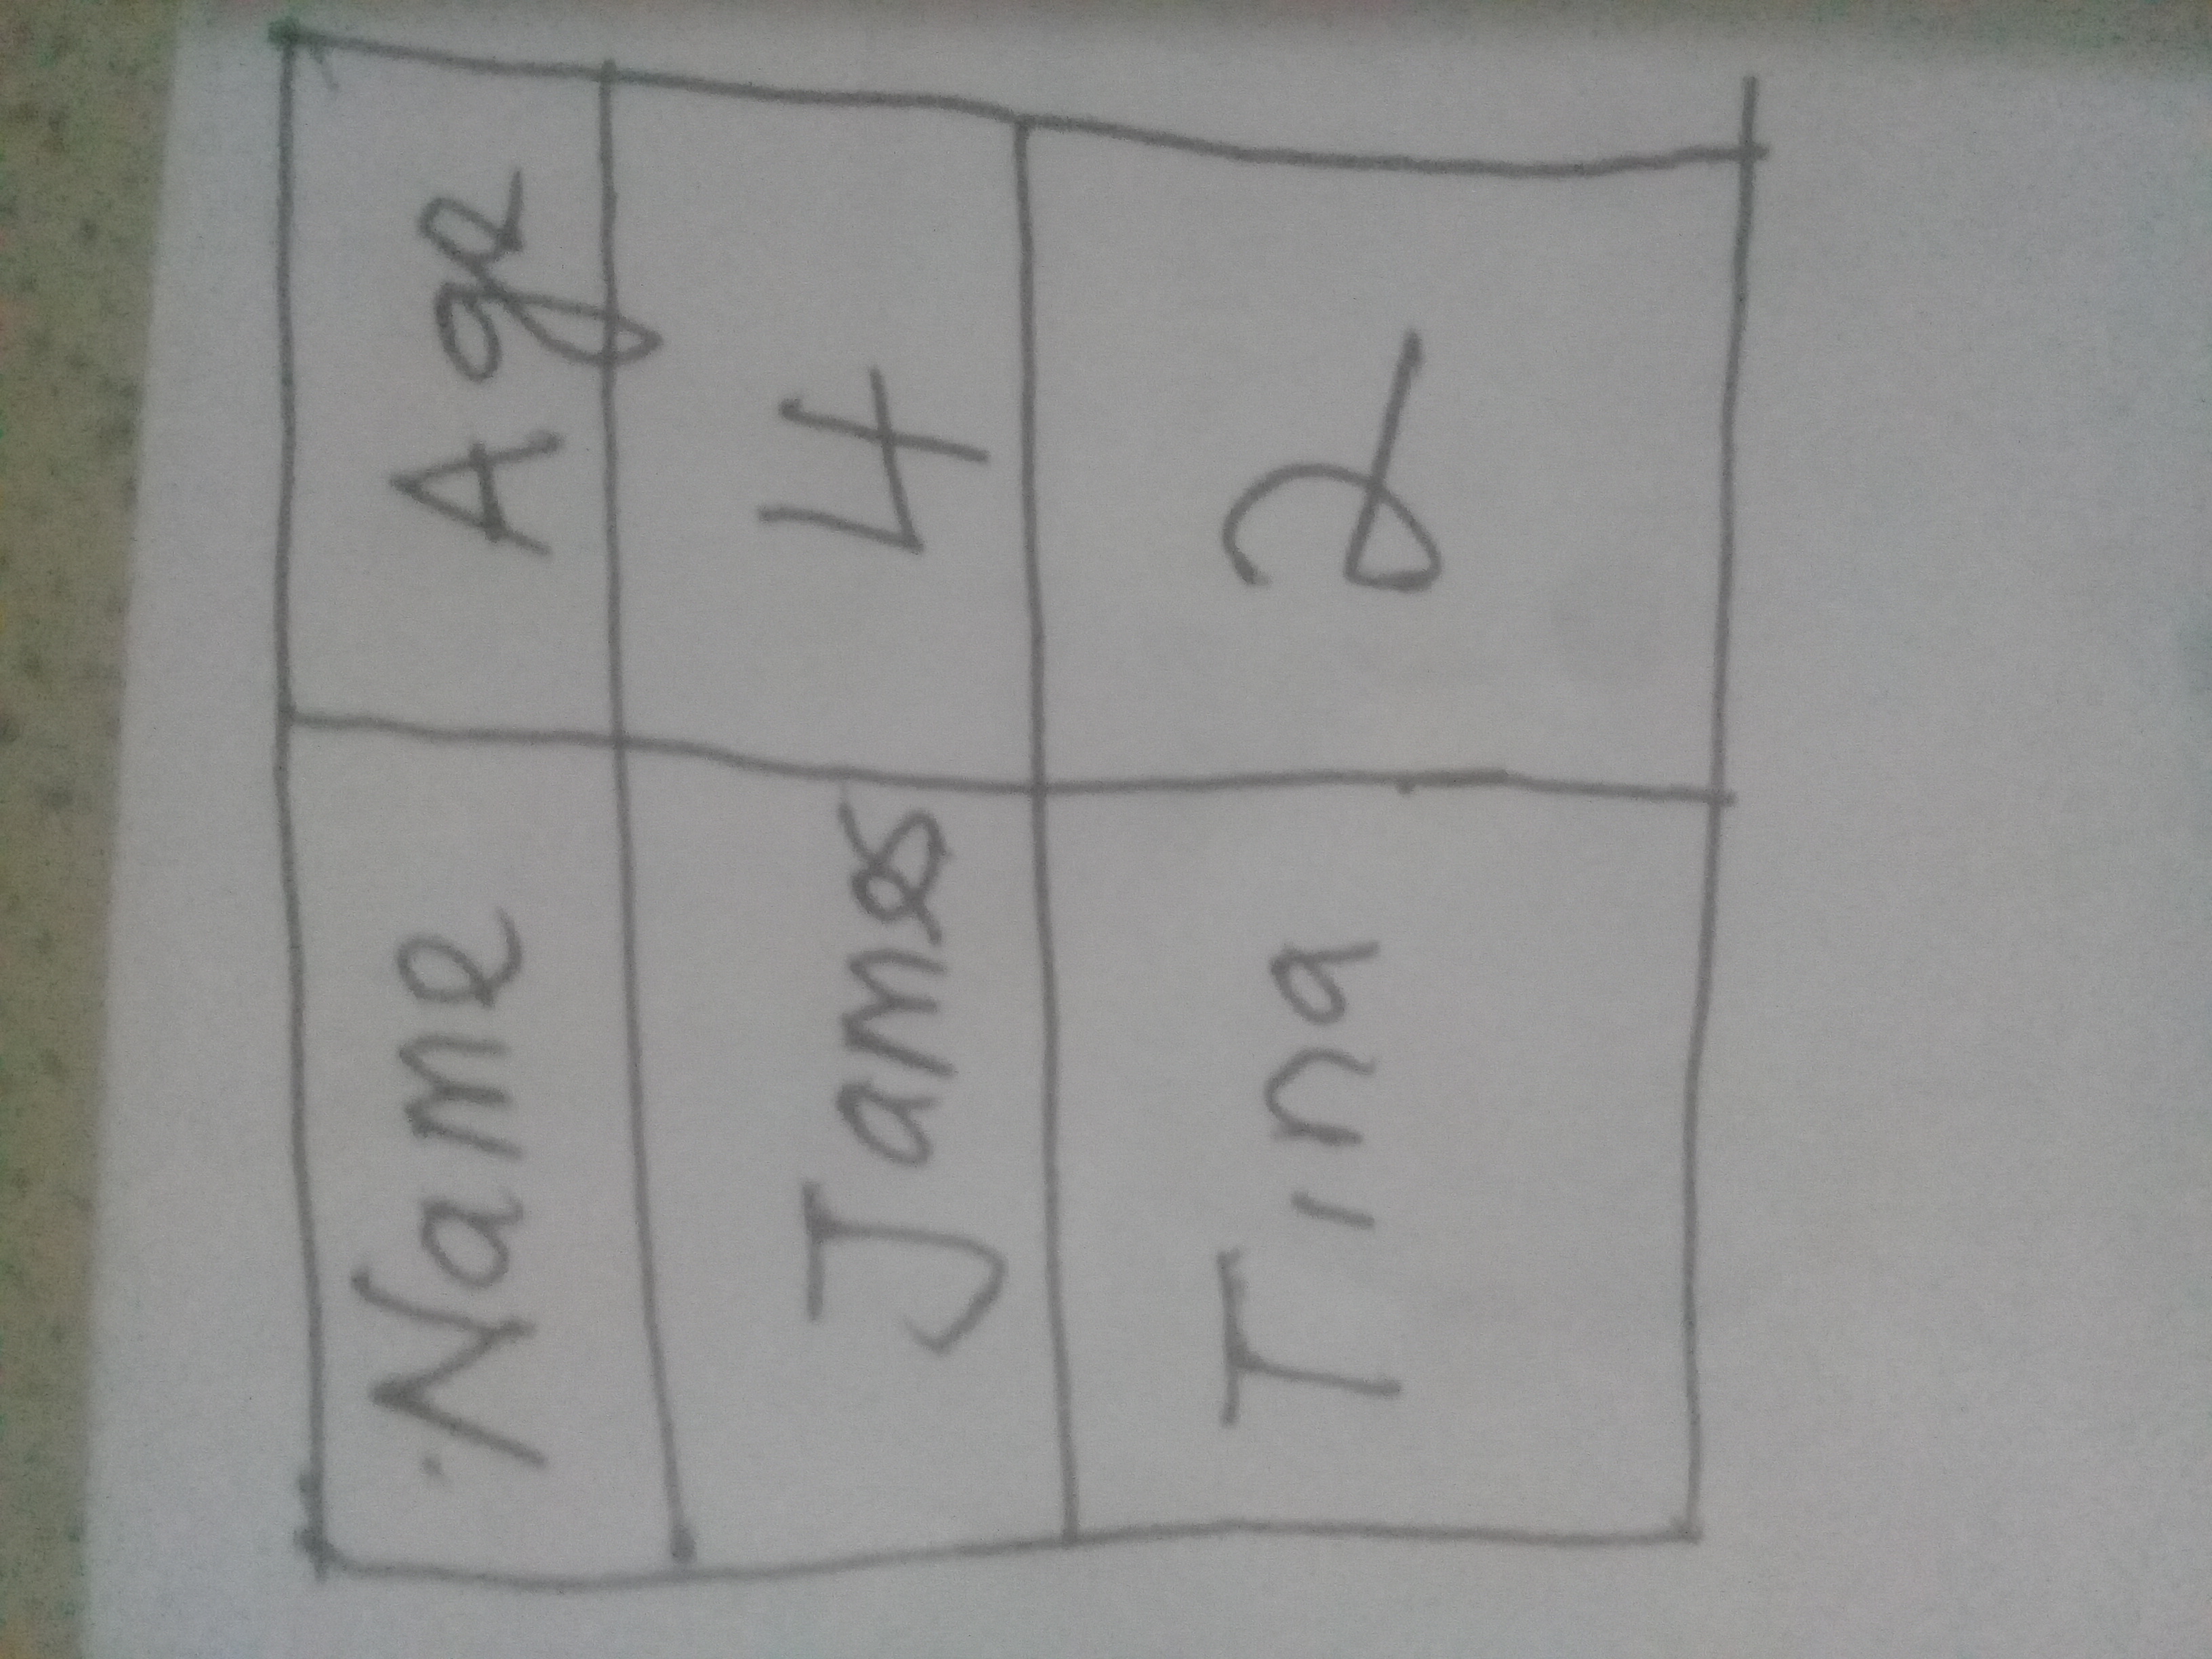 Name Age
James 4
Tina 2